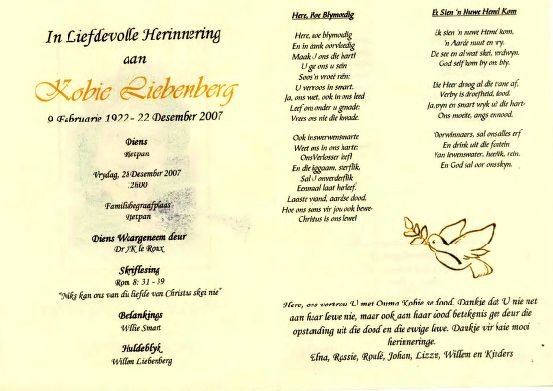 In Liefdevolle Herinnering
aan
Kobie Liebenberg
9 Februarie 1922 - 22 Desember 2007
Diens
Rietpan
Vrydag, 28 Desember 2007
Familiebegraafplaas
Rietpan
Diens Waargeneem deur
Skriflesing
Rom. 8: 31 - 39
"Niks kan ons van die liefde van Christus skei nie"
Belankings
Willie Smart
Huldeblyk
Willem Liebenberg
Here, hoe Blymoedig
Here, hoe blymoedig
En in dank oorvloedig
Maak U ons die hart!
U gee ons u seën
Soos 'n vroeë reën:
U vertroos in smart.
Ja, ons weet, ook in ons leed
Leef ons onder u genade:
Vrees ons nie die kwade.
Ook in swerwensuurte
Weet ons in ons harte:
Ons Verlosser leef!
En die liggaam, sterflik,
Sal U onverderflik
Eenmaal laat herleef.
Laaste vyand, aardse dood,
Hoe ons soms vir jou ook bewe-
Christus is ons lewe!
Ek Sien 'n Nuwe Hemel Kom
Ek sien 'n nuwe hemel kom,
'n Aarde nuut en vry.
De see en al wat skei, verdwyn.
God self kom by ons bly.
Die Heer droog al die trane af.
Verby is droefheid, dood.
Ja, pyn en smart wyk uit die hart-
Ons moeite, angs en nood.
Oorwinnaars, sal ons alles erf
En drink uit die fontein
Van lewenswater, heerlik, rein.
En God sal oor ons skyn.
Here, ons vertrou U met Ouma Kobie se dood. Dankie dat U nie net
aan haar lewe nie, maar ook aan haar dood betekenis gee deur die
opstanding uit die dood en die ewige lewe. Dankie vir baie mooi
herinneringe.
Elna, Johan, Lizze, Willem en Kinders